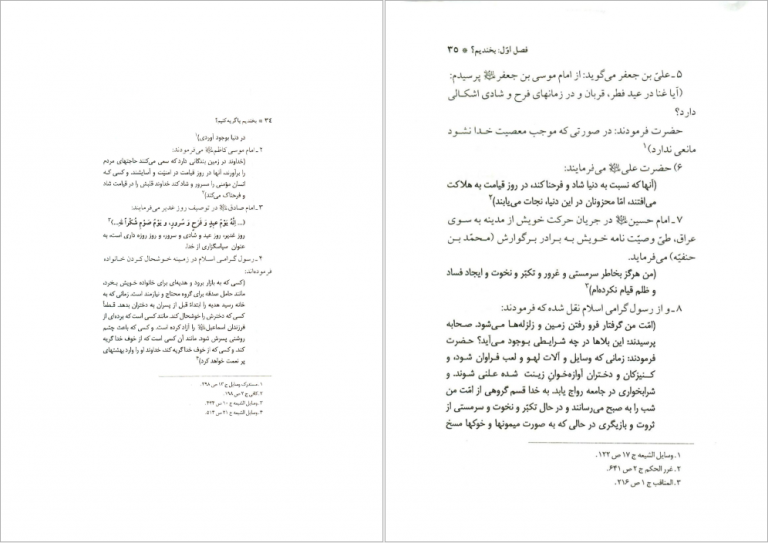 ۳۴ * بخندیم یا گریه کنیم؟
در دنیا بوجود آوردی)۱
۲ـ امام موسی کاظم(ع) می‌فرمودند:
(خداوند در زمین بندگانی دارد که سعی می‌کنند حاجتهای مردم
را برآورند، آنها در روز قیامت در امنیّت و آسایشند، و کسی که
انسان مؤمنی را مسرور و شاد کند خداوند قلبش را در قیامت شاد
و فرحناک می‌کند)۲
۳ـ امام صادق(ع) در توصیف روز غدیر می‌فرمایند:
(... اِنَّهُ یَوْمُ عیدٍ وَ فَرَحٍ وَ سُرورٍ، وَ یَوْمُ صَوْمٍ شُکْراً لِلّهِ...)۳
روز غدیر، روز عید و شادی و سرور، و روز روزه داری است، به
عنوان سپاسگزاری از خدا.
۴ـ رسول گرامی اسلام در زمینه خوشحال کردن خانواده
فرموده‌اند:
(کسی که به بازار برود و هدیه‌ای برای خانواده خویش بخرد،
مانند حامل صدقه برای گروه محتاج و نیازمند است. زمانی که به
خانه رسید هدیه را ابتداءً قبل از پسران به دختران بدهد. قطعاً
کسی که دخترش را خوشحال کند، مانند کسی است که برده‌ای از
فرزندان اسماعیل(ع) را آزاد کرده است. و کسی که باعث چشم
روشنی پسرش شود، مانند آن کسی است که از خوف خدا گریه
کند. و کسی که از خوف خدا گریه کند، خداوند او را وارد بهشتهای
پر نعمت خواهد کرد)۴
۱. مستدرک وسایل ج ۱۲ ص ۳۹۸.
۲. کافی ج ۲ ص ۱۹۸.
۳. وسایل الشیعه ج ۱۰ ص ۴۴۴.
۴. وسایل الشیعه ج ۲۱ ص ۵۱۴.
فصل اوّل: بخندیم؟ * ۳۵
۵ـ علیّ بن جعفر می‌گوید: از امام موسی بن جعفر(ع) پرسیدم:
(آیا غنا در عید فطر، قربان و در زمانهای فرح و شادی اشکالی
دارد؟
حضرت فرمودند: در صورتی که موجب معصیت خدا نشود
مانعی ندارد)۱
۶) حضرت علی(ع) می‌فرمایند:
(آنها که نسبت به دنیا شاد و فرحناکند، در روز قیامت به هلاکت
می‌افتند، امّا محزونان در این دنیا، نجات می‌یابند)۲
۷ـ امام حسین(ع) در جریان حرکت خویش از مدینه به سوی
عراق، طیّ وصیّت نامه خویش به برادر بزرگوارش (محمّد بن
حنفیّه) می‌فرماید.
(من هرگز بخاطر سرمستی و غرور و تکبّر و نخوت و ایجاد فساد
و ظلم قیام نکرده‌ام)۳
۸ـ و از رسول گرامی اسلام نقل شده که فرمودند:
(امّت من گرفتار فرو رفتن زمین و زلزله‌ها می‌شود. صحابه
پرسیدند: این بلاها در چه شرایطی بوجود می‌آید؟ حضرت
فرمودند: زمانی که وسایل و آلات لهو و لعب فراوان شود، و
کنیزکان و دختران آوازه‌خوان زینت شده علنی شوند. و
شرابخواری در جامعه رواج یابد. به خدا قسم گروهی از امّت من
شب را به صبح می‌رسانند و در حال تکبّر و نخوت و سرمستی از
ثروت و بازیگری در حالی که به صورت میمونها و خوکها مسخ
۱. وسایل الشیعه ج ۱۷ ص ۱۲۲.
۲. غرر الحکم ج ۲ ص ۶۴۱.
۳. المناقب ج ۱ ص ۲۱۶.